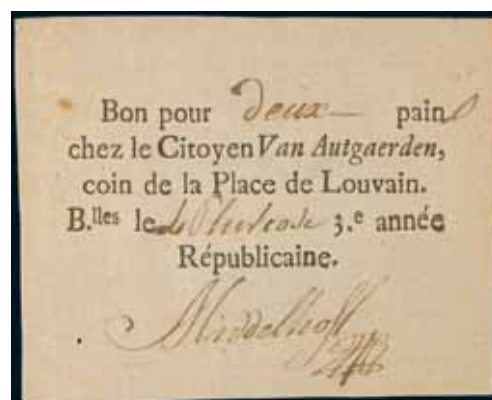 Bon pour deux pains
chez le Citoyen Van Autgaerden,
coin de la Place de Louvain.
B.lles le 3.e année
Républicaine.
Middelhoff